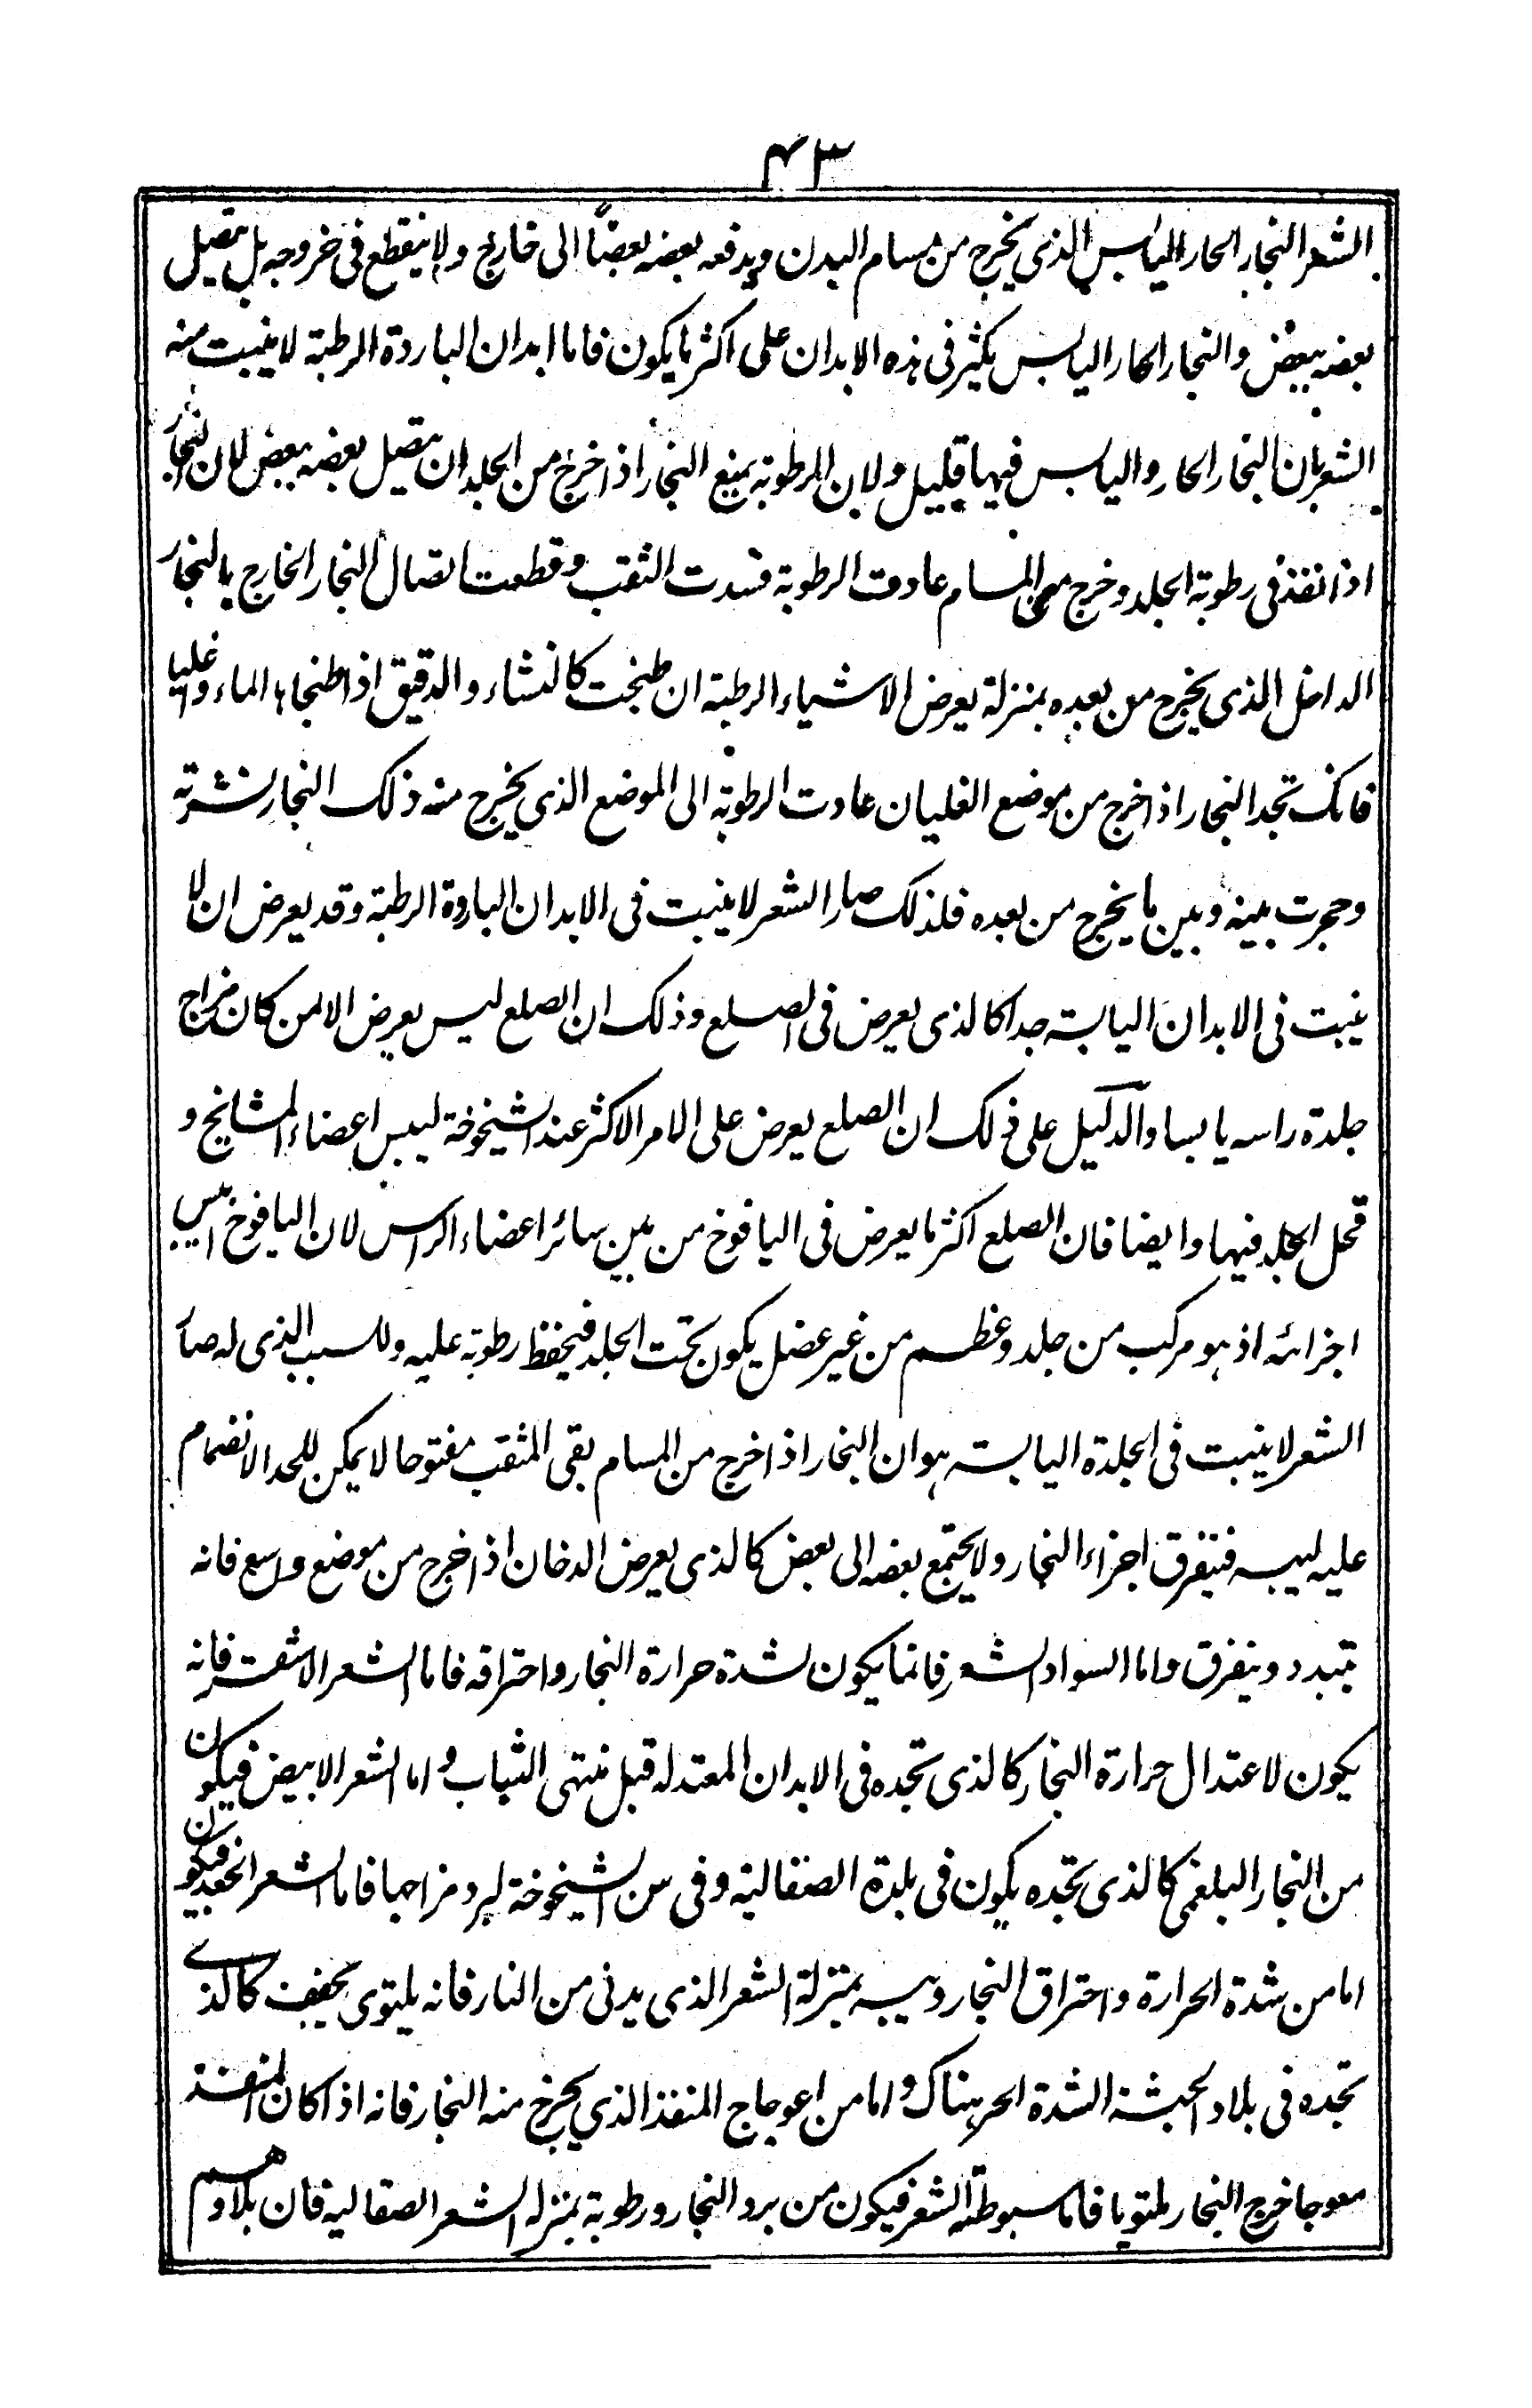 ۴۳
الشعر البخار الحار اليابس الذى يخرج من مسام البدن ويدفعه بعضه بعضًا الى خارج ولا ينقطع فى خروجه بل يتصل
بعضه ببعض والبخار الحار اليابس يكثر فى هذه الابدان على اكثر ما يكون فاما ابدان الباردة الرطبة لا ينبت منه
الشعر بان البخار الحار واليابس فيها قليل ولان الرطوبة يمنع البخار اذا خرج من الجلد ان يتصل بعضه ببعض لان البخار
اذا نفذ فى رطوبة الجلد وخرج من المسام عادت الرطوبة فسدت الثقب وقطعت اتصال البخار الخارج بالبخار
الداخل الذى يخرج من بعده بمنزلة يعرض الاشياء الرطبة ان طبخت كالنشاء والدقيق اذا طبخا بالماء واغليا
فانك تجد البخار اذا خرج من موضع الغليان عادت الرطوبة الى الموضع الذى يخرج منه ذلك البخار نشرته
وحجرت بينه وبين ما يخرج من بعده فلذلك صار الشعر لا ينبت فى الابدان الباردة الرطبة وقد يعرض ان لا
ينبت فى الابدان اليابسة جدا كالذى يعرض فى الصلع وذلك ان الصلع ليس يعرض الا لمن كان مزاج
جلدة راسه يابسا والدليل على ذلك ان الصلع يعرض على الامر الاكثر عند الشيخوخة ليبس اعضاء المشايخ و
قحل الجلد فيها وايضا فان الصلع اكثر ما يعرض فى اليافوخ من بين سائر اعضاء الراس لان اليافوخ ايبس
اجزائه اذ هو مركب من جلد وعظم من غير عضل يكون تحت الجلد فيحفظ رطوبة عليه وللسبب الذى له صار
الشعر لا ينبت فى الجلدة اليابسة هو ان البخار اذا خرج من المسام بقى المثقب مفتوحا لا يمكن للجلد الانضمام
عليه ليبسه فتفرق اجزاء البخار ولا يجتمع بعضه الى بعض كالذى يعرض الدخان اذا خرج من موضع واسع فانه
يتبدد ويتفرق واما السواد الشعر فانما يكون لشدة حرارة البخار واحتراقه فاما الشعر الاشقر فانه
يكون لاعتدال حرارة البخار كالذى تجده فى الابدان المعتدله قبل منتهى الشباب و اما الشعر الابيض فيكون
من البخار البلغمى كالذى تجده يكون فى بلدة الصقالبة وفى سن الشيخوخة لبرد مزاجها فاما الشعر الجعد فيكون
اما من شدة الحرارة واحتراق البخار ويبسه بمنزلة الشعر الذى يدنى من النار فانه يلتوى يجفف كالذى
تجده فى بلاد الحبشة الشدة الحر هناك و اما من اعوجاج المنفذ الذى يخرج منه البخار فانه اذا كان المنفذ
معوجا خرج البخار ملتويا فاما سبوطة الشعر فيكون من برد البخار ورطوبة بمنزله الشعر الصقالبه فان بلادهم